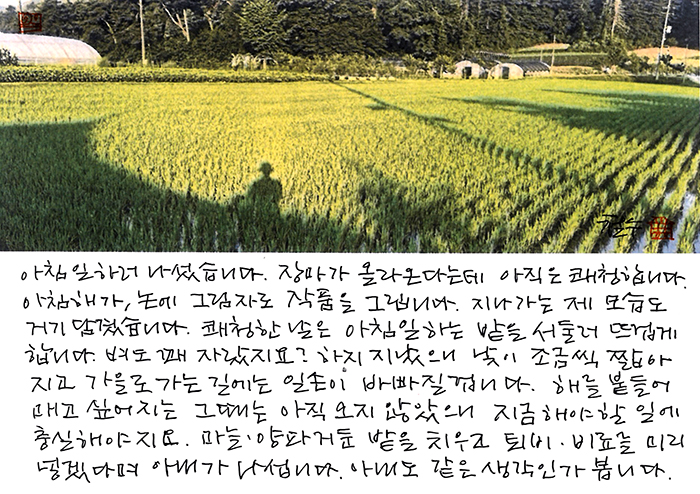 아침 일하러 나섰습니다. 장마가 올라온다는데 아직은 쾌청합니다.
아침해가, 논에 그림자로 작품을 그립니다. 지나가는 제 모습도
거기 담겼습니다. 쾌청한 날은 아침일하는 밭을 서둘러 뜨겁게
합니다. 벼도 꽤 자랐지요? 하지 지났으니 낮이 조금씩 짧아
지고 가을로 가는 길에는 일손이 바빠질겁니다. 해를 붙들어
매고 싶어지는 그때는 아직 오지 않았으니 지금 해야 할 일에
충실해야지요. 마늘·양파거둔 밭을 치우고 퇴비·비료를 미리
넣겠다며 아내가 나섭니다. 아내도 같은 생각인가 봅니다.